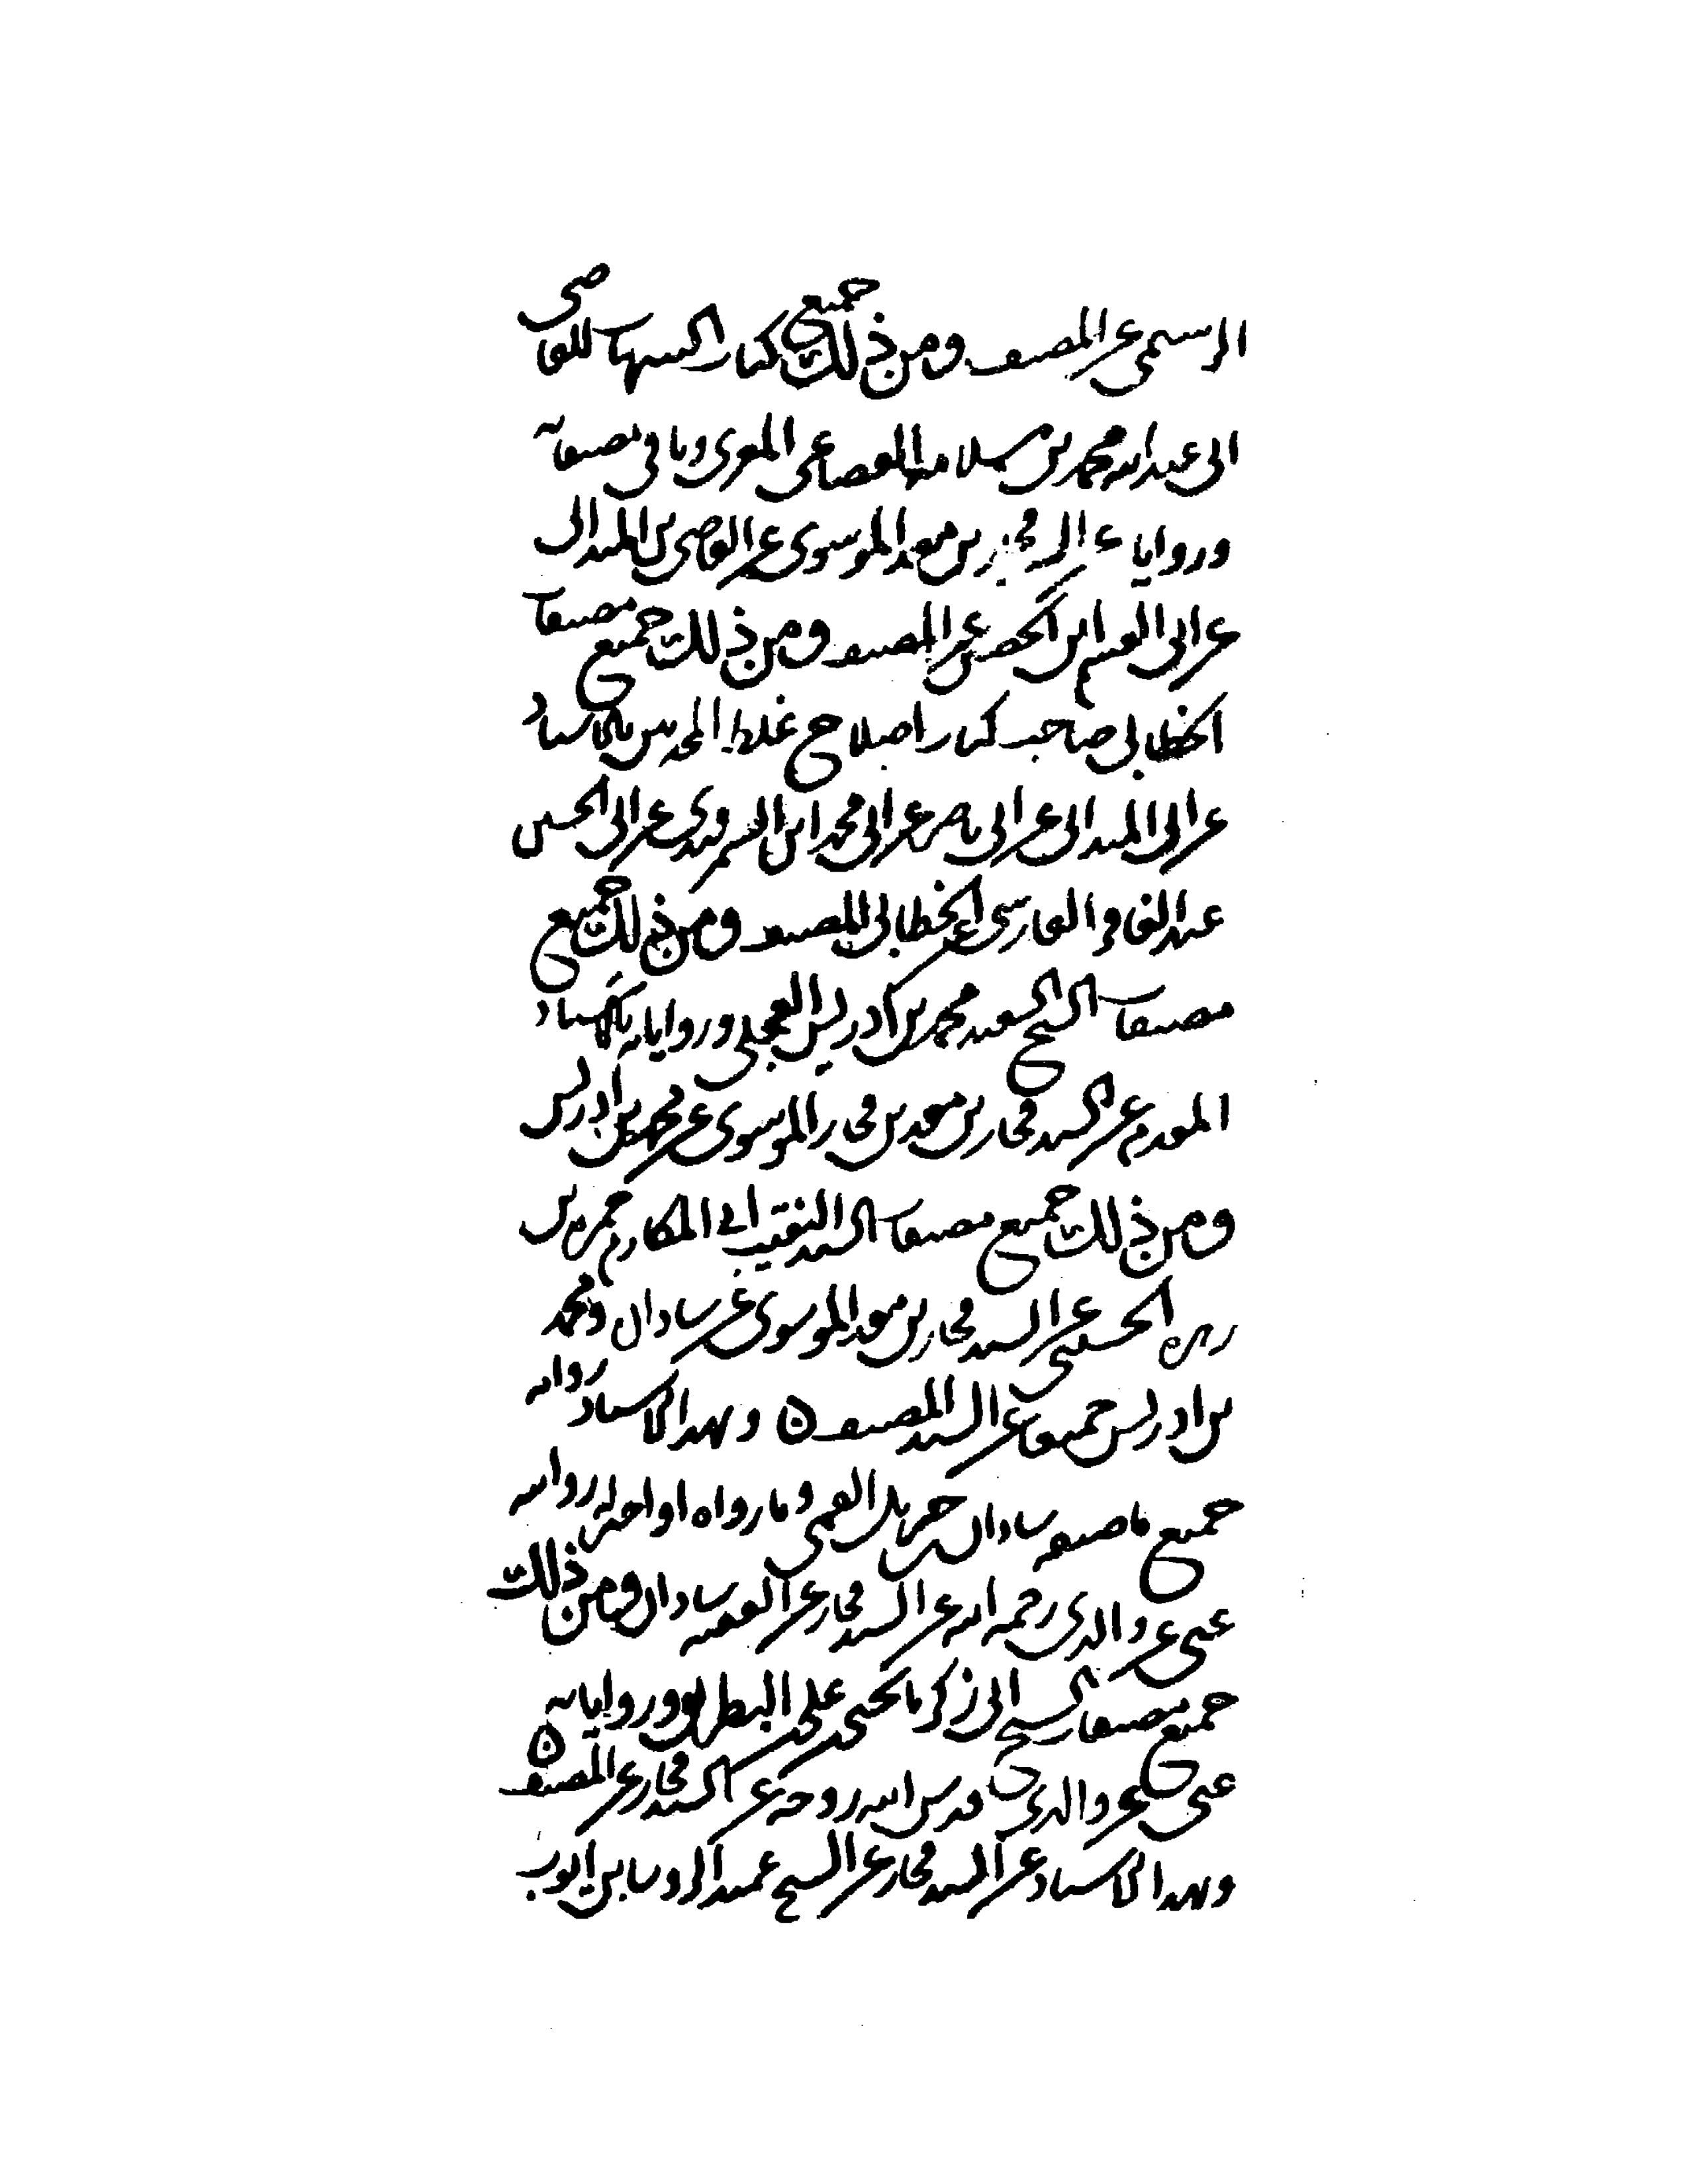 الرستمي عن المصنف ومن ذلك جميع كتاب الشهاب للقاضي
ابي عبد الله محمد بن سلامة القضاعي المغربي وباقي مصنفاته
ورواياته عن السيد فخار بن معد الموسوي عن القاضي بن الميداني
عن ابي القسم ابن الحصين عن المصنف ومن ذلك جميع مصنفات
الخطابي صاحب كتاب اصلاح غلط المحدثين بالاسناد
عن ابن الميداني عن ابن ناصر عن ابي محمد ابن السمرقندي عن ابي الحسين
عبد الغافر الفارسي عن الخطابي المصنف ومن ذلك جميع
مصنفات الشيخ السعيد محمد بن ادريس العجلي ورواياته بالاسناد
المقدم عن السيد فخار بن معد بن فخار الموسوي عن محمد بن ادريس
ومن ذلك جميع مصنفات السيد النقيب ابي المكارم حمزة بن
زهرة الحسيني عن السيد فخار بن معد الموسوي عن شاذان ومحمد
بن ادريس جميعا عن السيد المصنف ٥ وبهذا الاسناد رواية
جميع ما صنفه شاذان بن جبريل القمي وما رواه او اجيز له روايته
عني عن والدي رحمه الله عن السيد فخار عن الفقيه شاذان ومن ذلك
جميع مصنفات الشيخ ابي زكريا يحيى بن علي البطريق ورواياته
عني عن والدي قدس الله روحه عن السيد فخار عن المصنف ٥
وبهذا الاسناد عن السيد فخار عن الشيخ عميد الروسا بن ايوب